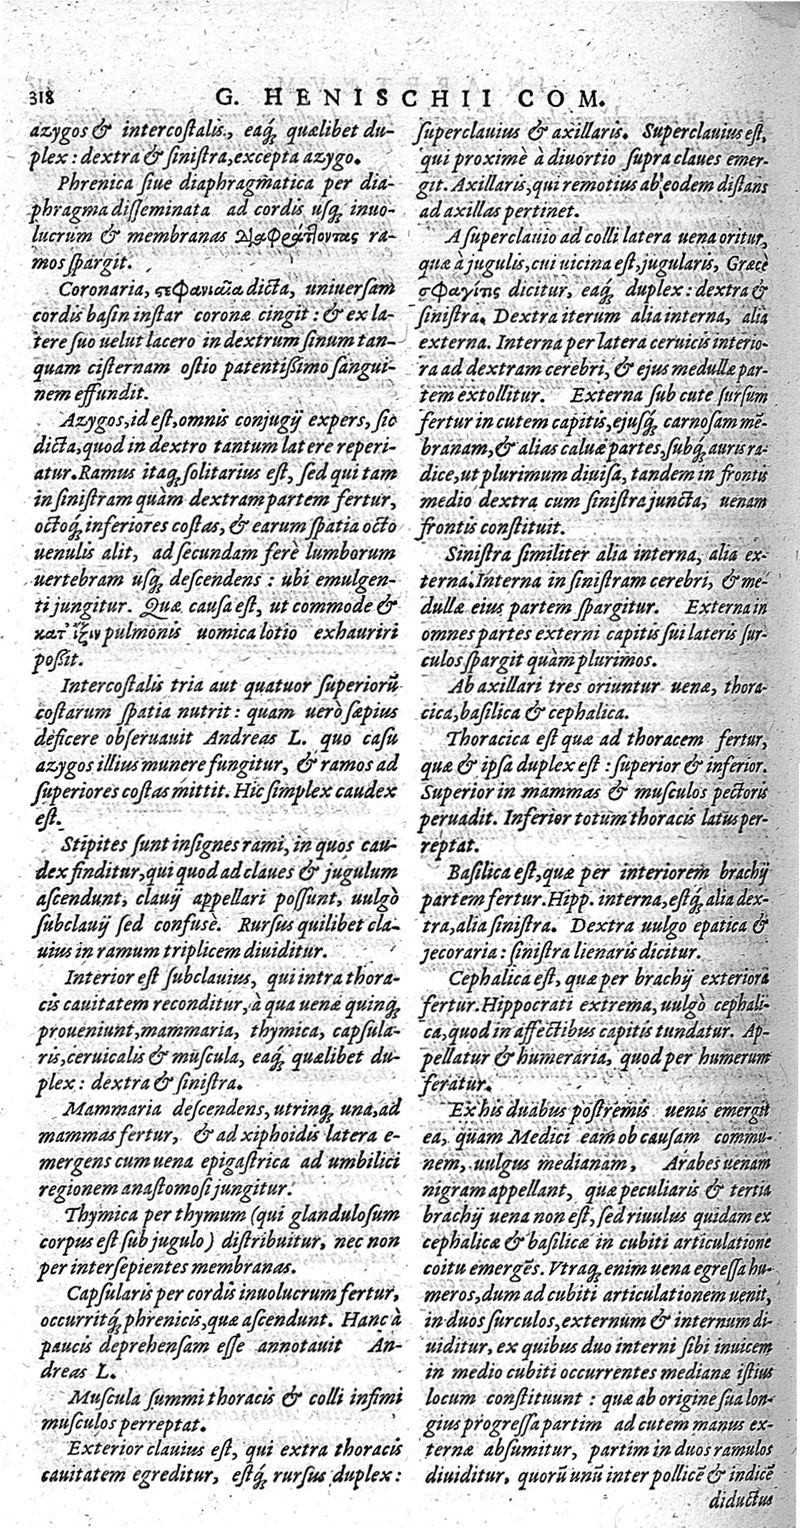 318
G. HENISCHII COM.
azygos & intercoſtalis, eaq́; quælibet du-
plex: dextra & ſiniſtra, excepta azygo.
Phrenica ſiue diaphragmatica per dia-
phragma diſſeminata ad cordis uſq́; inuo-
lucrum & membranas διαφράττοντας ra-
mos ſpargit.
Coronaria, στεφανιαῖα dicta, univerſam
cordis baſin inſtar coronæ cingit: & ex la-
tere ſuo uelut lacero in dextrum ſinum tan-
quam ciſternam oſtio patentißimo ſangui-
nem effundit.
Azygos, id eſt, omnis conjugij expers, ſic
dicta, quod in dextro tantum latere reperi-
atur. Ramus itaq́; ſolitarius eſt, ſed qui tam
in ſiniſtram quàm dextram partem fertur,
octoq́; inferiores coſtas, & earum ſpatia octo
uenulis alit, ad ſecundam ferè lumborum
uertebram uſq́; deſcendens: ubi emulgen-
ti jungitur. Quæ cauſa eſt, ut commode &
κατ' ἴξιν pulmonis uomica lotio exhauriri
poßit.
Intercoſtalis tria aut quatuor ſuperiorū
coſtarum ſpatia nutrit: quam uerò ſæpius
deficere obſeruauit Andreas L. quo caſu
azygos illius munere fungitur, & ramos ad
ſuperiores coſtas mittit. Hic ſimplex caudex
eſt.
Stipites ſunt inſignes rami, in quos cau-
dex finditur, qui quod ad claues & jugulum
aſcendunt, clauij appellari poſſunt, uulgò
ſubclauij ſed confuſè. Rurſus quilibet cla-
uius in ramum triplicem diuiditur.
Interior eſt ſubclauius, qui intra thora-
cis cauitatem reconditur, à qua uenæ quinq́;
proueniunt, mammaria, thymica, capſula-
ris, ceruicalis & muſcula, eaq́; quælibet du-
plex: dextra & ſiniſtra.
Mammaria deſcendens, utrinq́; una, ad
mammas fertur, & ad xiphoidis latera e-
mergens cum uena epigaſtrica ad umbilici
regionem anaſtomoſi jungitur.
Thymica per thymum (qui glanduloſum
corpus eſt ſub jugulo) diſtribuitur, nec non
per interſepientes membranas.
Capſularis per cordis inuolucrum fertur,
occurritq́; phrenicis, quæ aſcendunt. Hanc à
paucis deprehenſam eſſe annotauit An-
dreas L.
Muſcula ſummi thoracis & colli infimi
muſculos perreptat.
Exterior clauius eſt, qui extra thoracis
cauitatem egreditur, eſtq́; rurſus duplex:
ſuperclauius & axillaris. Superclauius eſt,
qui proximè à diuortio ſupra claues emer-
git. Axillaris, qui remotius ab eodem diſtans
ad axillas pertinet.
A ſuperclauio ad colli latera uena oritur,
quæ à jugulis, cui uicina eſt, jugularis, Græcè
σφαγίτις dicitur, eaq́; duplex: dextra &
ſiniſtra. Dextra iterum alia interna, alia
externa. Interna per latera ceruicis interio-
ra ad dextram cerebri, & ejus medullæ par-
tem extollitur. Externa ſub cute ſurſum
fertur in cutem capitis, ejuſq́; carnoſam mē-
branam, & alias caluæ partes, ſubq́; auris ra-
dice, ut plurimum diuiſa, tandem in frontis
medio dextra cum ſiniſtra juncta, uenam
frontis conſtituit.
Siniſtra ſimiliter alia interna, alia ex-
terna. Interna in ſiniſtram cerebri, & me-
dullæ eius partem ſpargitur. Externa in
omnes partes externi capitis ſui lateris ſur-
culos ſpargit quàm plurimos.
Ab axillari tres oriuntur uenæ, thora-
cica, baſilica & cephalica.
Thoracica eſt quæ ad thoracem fertur,
quæ & ipſa duplex eſt: ſuperior & inferior.
Superior in mammas & muſculos pectoris
peruadit. Inferior totum thoracis latus per-
reptat.
Baſilica eſt, quæ per interiorem brachij
partem fertur. Hipp. interna, eſtq́; alia dex-
tra, alia ſiniſtra. Dextra uulgo epatica &
jecoraria: ſiniſtra lienaris dicitur.
Cephalica eſt, quæ per brachij exteriora
fertur. Hippocrati extrema, uulgò cephali-
ca, quod in affectibus capitis tundatur. Ap-
pellatur & humeraria, quod per humerum
feratur.
Ex his duabus poſtremis uenis emergit
ea, quam Medici eam ob cauſam commu-
nem, uulgus medianam, Arabes uenam
nigram appellant, quæ peculiaris & tertia
brachij uena non eſt, ſed riuulus quidam ex
cephalica & baſilica in cubiti articulatione
coitu emergēs. Vtraq́; enim uena egreſſa hu-
meros, dum ad cubiti articulationem uenit,
in duos ſurculos, externum & internum di-
uiditur, ex quibus duo interni ſibi inuicem
in medio cubiti occurrentes medianæ iſtius
locum conſtituunt: quæ ab origine ſua lon-
gius progreſſa partim ad cutem manus ex-
ternæ abſumitur, partim in duos ramulos
diuiditur, quorū unū inter pollicē & indicē
diductus